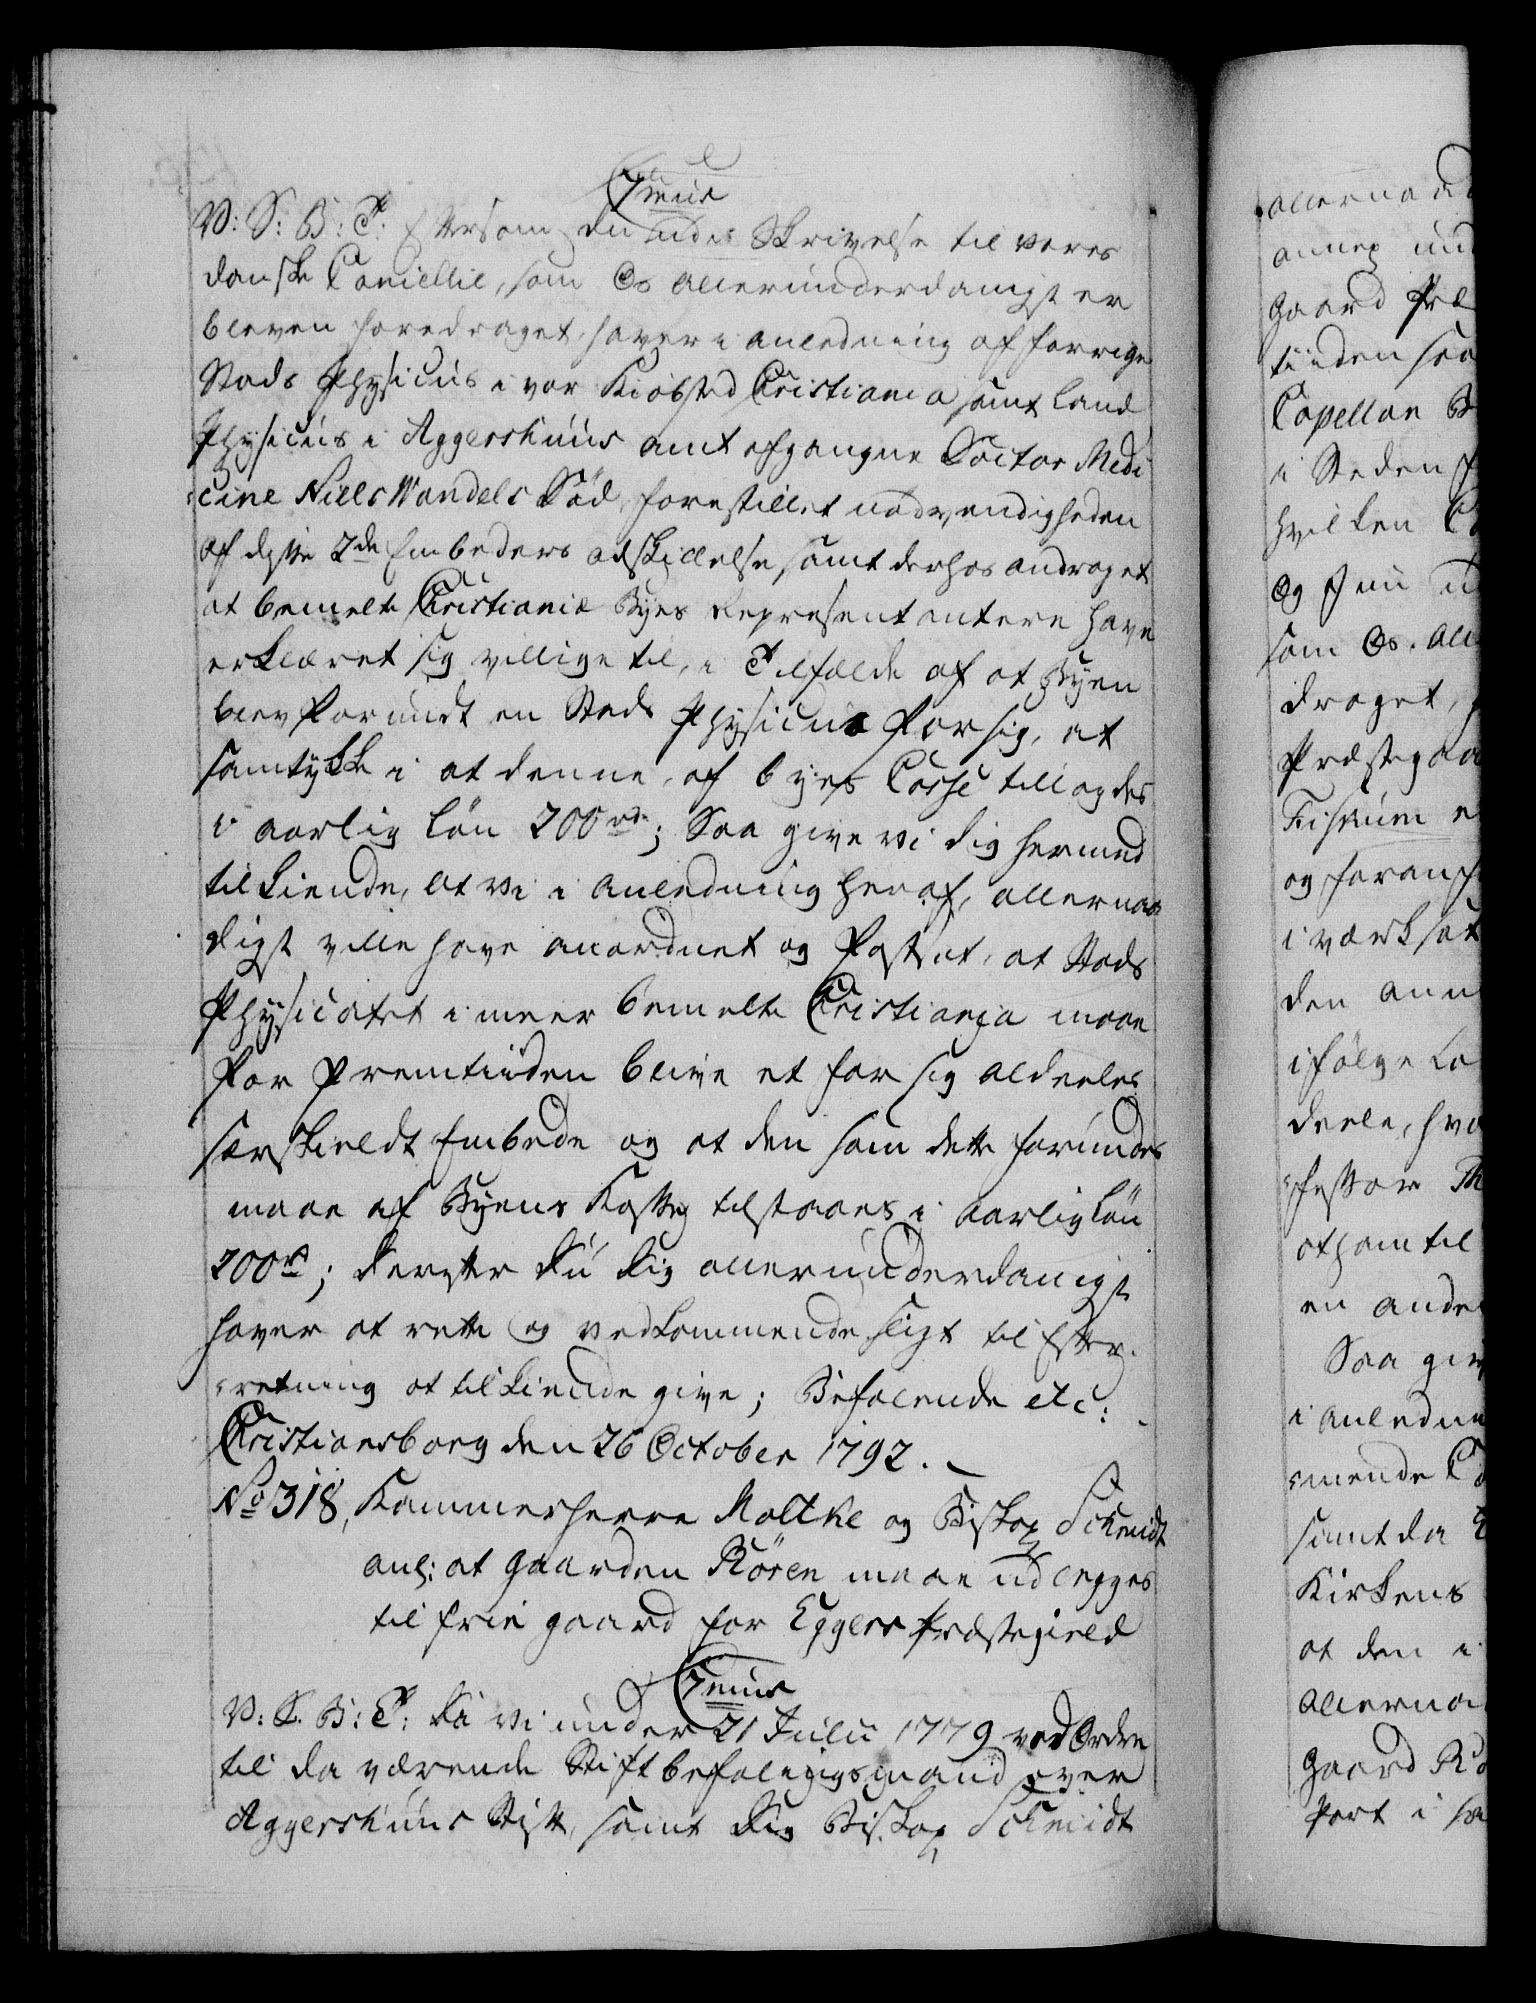 C7mus
V: S: B: T: Eftersom du udi Skrivelse til vores
danske Cancellie, som Os allerunderdanigst er
bleven foredraget, haver i anledning af forrige
Stads Physicus i vor Kiöbsted Christiania samt Land
Physicus i Aggershuus amt afgangne Doctor Medi
cine Niels Wandels Död, forestillet nödvendigheden
af disse 2de Embeders adskillelse, samt derhos andraget
at bemelte Christianiæ Byes Representantere have
erklæret sig villige til, i Tilfælde af at Byen
blev forundt en Stads Physicus for sig, at
samtykke i at denne, af byes Casse tillagdes
i aarlig Lön 200 rd; Saa give vi dig hermed
tilkiende, at vi i anledning heraf, allernaa
digst ville have anordnet og fastsat, at Stads
Physicatet i meer bemelte Christiania maae
for fremtiiden blive et for sig aldeeles
særskieldt Embede og at den som dette forundes
maae af Byens Kasse tilstaaes i aarlig Lön
200 rd; derefter Du dig allerunderdanigst
haver at rette og vedkommende sligt til Efter-
retning at tilkiende give; Befalende etc:
Christiansborg den 26 October 1792.
No 318, Kammerherre Moltke og Biskop Schmidt
anl: at gaarden Rören maae udlegges
til frie gaard for Eggers Præstegield
C7mus
V: S: B: T: Da vi under 21 Julii 1779 ved Ordre
til da værende Stiftbefalingsmand over
Aggershuus Stift, samt Dig Biskop Schmidt
annex
gaard
tiiden saa
Capellan
i Steden
hvilken
og
som Os. all
draget,
Præstegaa
Fiskum
og
iværksat
den ann
ifölge
deele, hva
at ham til
en
Saa giv
i anledn
mende
samt da
Kirkens
at den i
allerna
gaard
Port i